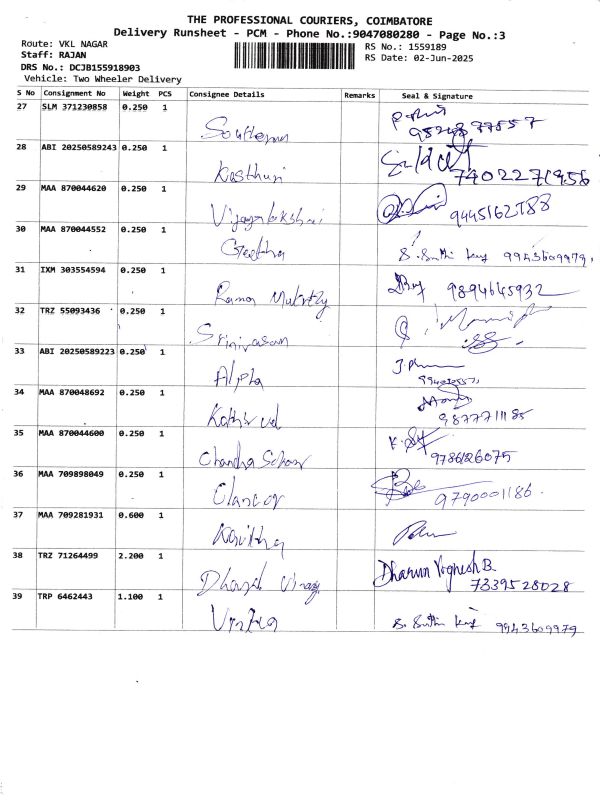 THE PROFESSIONAL COURIERS, COIMBATORE
Delivery Runsheet - PCM - Phone No.:9047080280 - Page No.:3
Route: VKL NAGAR
Staff: RAJAN
DRS No.: DCJB155918903
Vehicle: Two Wheeler Delivery
RS No.: 1559189
RS Date: 02-Jun-2025
S No Consignment No Weight PCS Consignee Details Remarks Seal & Signature
27 SLM 371230858 0.250 1
28 ABI 20250589243 0.250 1 Kasthuri
29 MAA 870044620 0.250 1 9445162788
30 MAA 870044552 0.250 1 Geetha 9943609979
31 IXM 303554594 0.250 1 9894645932
32 TRZ 55093436 0.250 1 Srinivasan
33 ABI 20250589223 0.250 1 Alpha
34 MAA 870048692 0.250 1
35 MAA 870044600 0.250 1 9786126075
36 MAA 709898049 0.250 1 9790001186
37 MAA 709281931 0.600 1 Kavitha
38 TRZ 71264499 2.200 1 Dharun Yoghesh B.
7339528028
39 TRP 6462443 1.100 1 9943609979